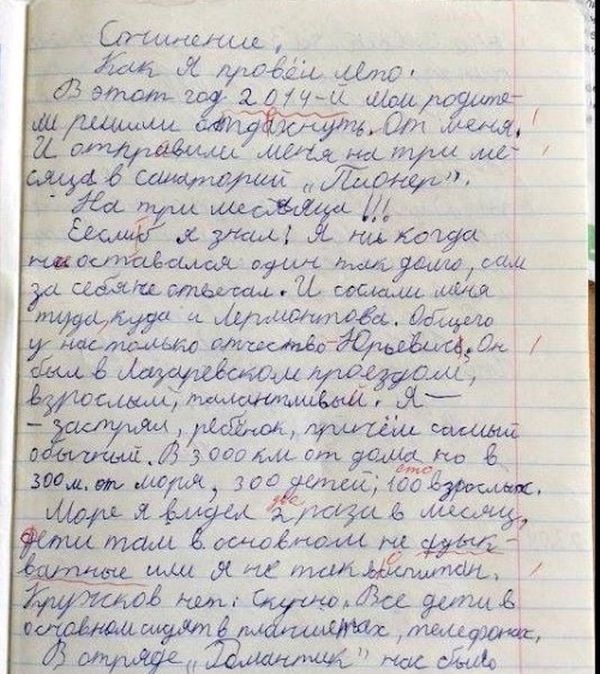 Сочинение.
Как я провёл лето.
В этот год 2014-й мои родите-
ли решили отдахнуть. От меня.
И отправили меня на три ме-
сяца в санаторий „Пионер".
На три месяца!!!
Еслиб я знал! Я ни когда
не оставался один так долго, сам
за себя не отвечал. И сослали меня
туда, куда и Лермонтова. Общего
у нас только отчество - Юрьевич. Он
был в Лазаревском проездом,
взрослый, талантливый. Я —
- застрял, ребёнок, причём самый
обычный. В 3 000 км от дома но в
сто
300 м. от моря, 300 детей, 100 взрослых.
две
Море я видел 2 раза в месяц,
дети там в основном не адык-
ватные или я не так воспитан.
Кружков нет. Скучно. Все дети в
основном сидят в планшетах, телефонах.
В отряде „Романтик" нас было